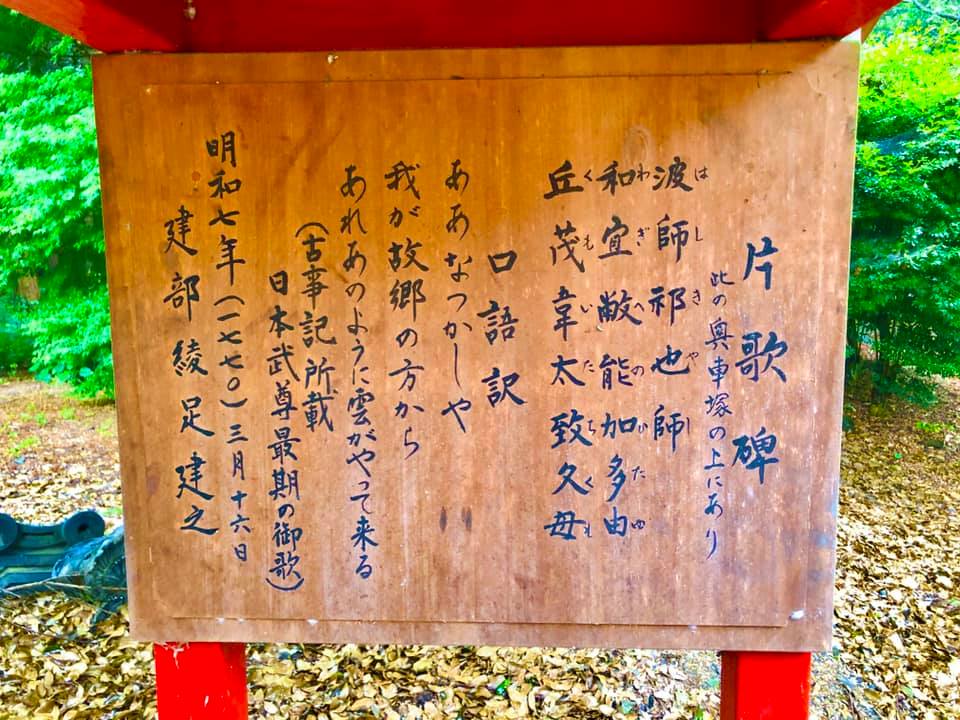 片歌碑
此の奥車塚の上にあり
はしきやし
波師祁也師
わぎへのかたゆ
和宜敝能加多由
くもいたちくも
丘茂韋太致久母
口語訳
ああなつかしや
我が故郷の方から
あれあのように雲がやって来る
(古事記所載
日本武尊最期の御歌)
明和七年(一七七〇)三月十六日
建部綾足建之